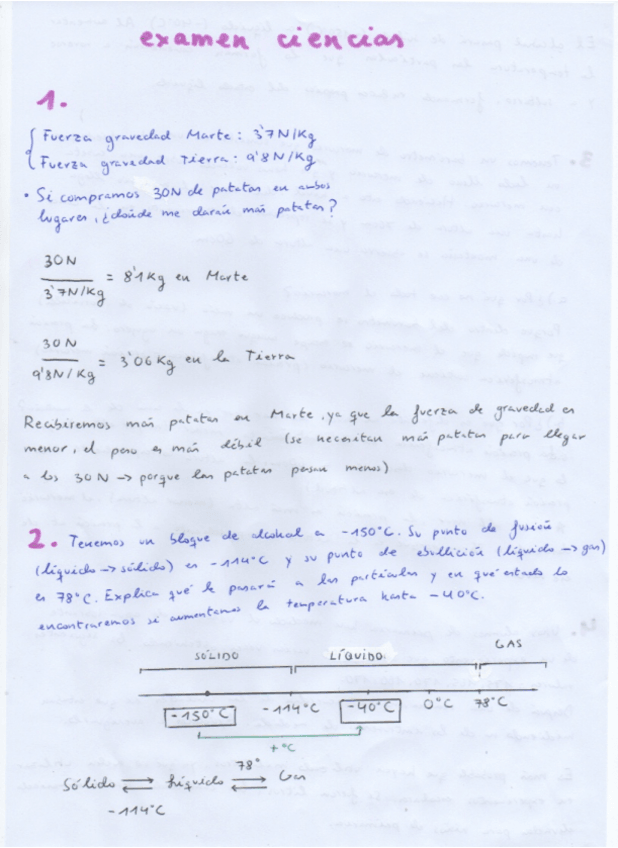 examen ciencias
1.
Fuerza gravedad Marte: 3'7N/Kg
Fuerza gravedad Tierra: 9'8N/Kg
• Si compramos 30N de patatas en ambos
lugares, ¿dónde me darán más patatas?
30N
3'7N/Kg = 8'1Kg en Marte
30N
9'8N/Kg = 3'06Kg en la Tierra
Recibiremos más patatas en Marte, ya que la fuerza de gravedad es
menor, el peso es más débil (se necesitan más patatas para llegar
a los 30N → porque las patatas pesan menos)
2. Tenemos un bloque de alcohol a -150°C. Su punto de fusión
(líquido → sólido) es -114°C y su punto de ebullición (líquido → gas)
es 78°C. Explica qué le pasará a las partículas y en qué estado lo
encontraremos si aumentamos la temperatura hasta -40°C.
SÓLIDO LÍQUIDO GAS
-150°C -114°C -40°C 0°C 78°C
+°C
78°
Sólido ⇄ Líquido ⇄ Gas
-114°C